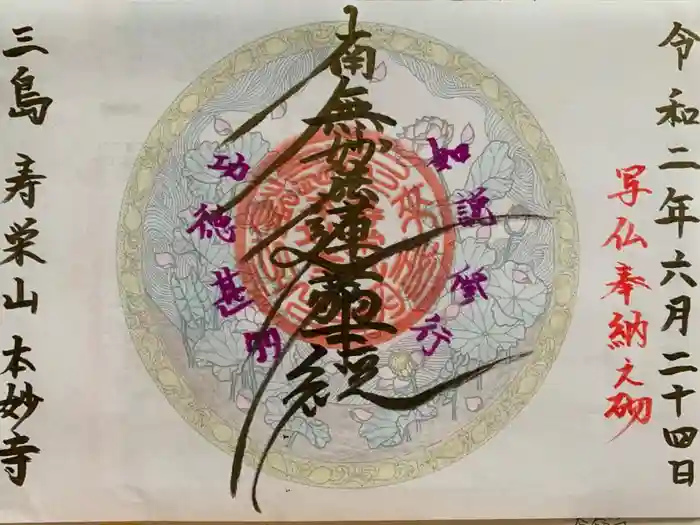 令和二年六月二十四日
写仏奉納之砌
如説
南無妙法蓮華経
功徳甚明
三島 寿栄山 本妙寺